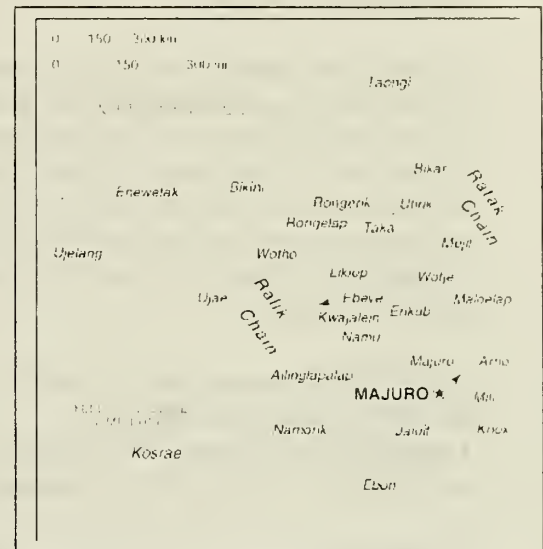 0 150 300 km
0 150 300 mi
Taongi
Bikar
Enewetak
Bikini
Ratak Chain
Rongerik
Utirik
Rongelap
Taka
Mejit
Ujelang
Wotho
Likiep
Wotje
Ujae
Ralik Chain
Ebeye
Maloelap
Kwajalein
Erikub
Namu
Majuro
Arno
Ailinglapalap
MAJURO
Mili
Namorik
Jaluit
Knox
Kosrae
Ebon